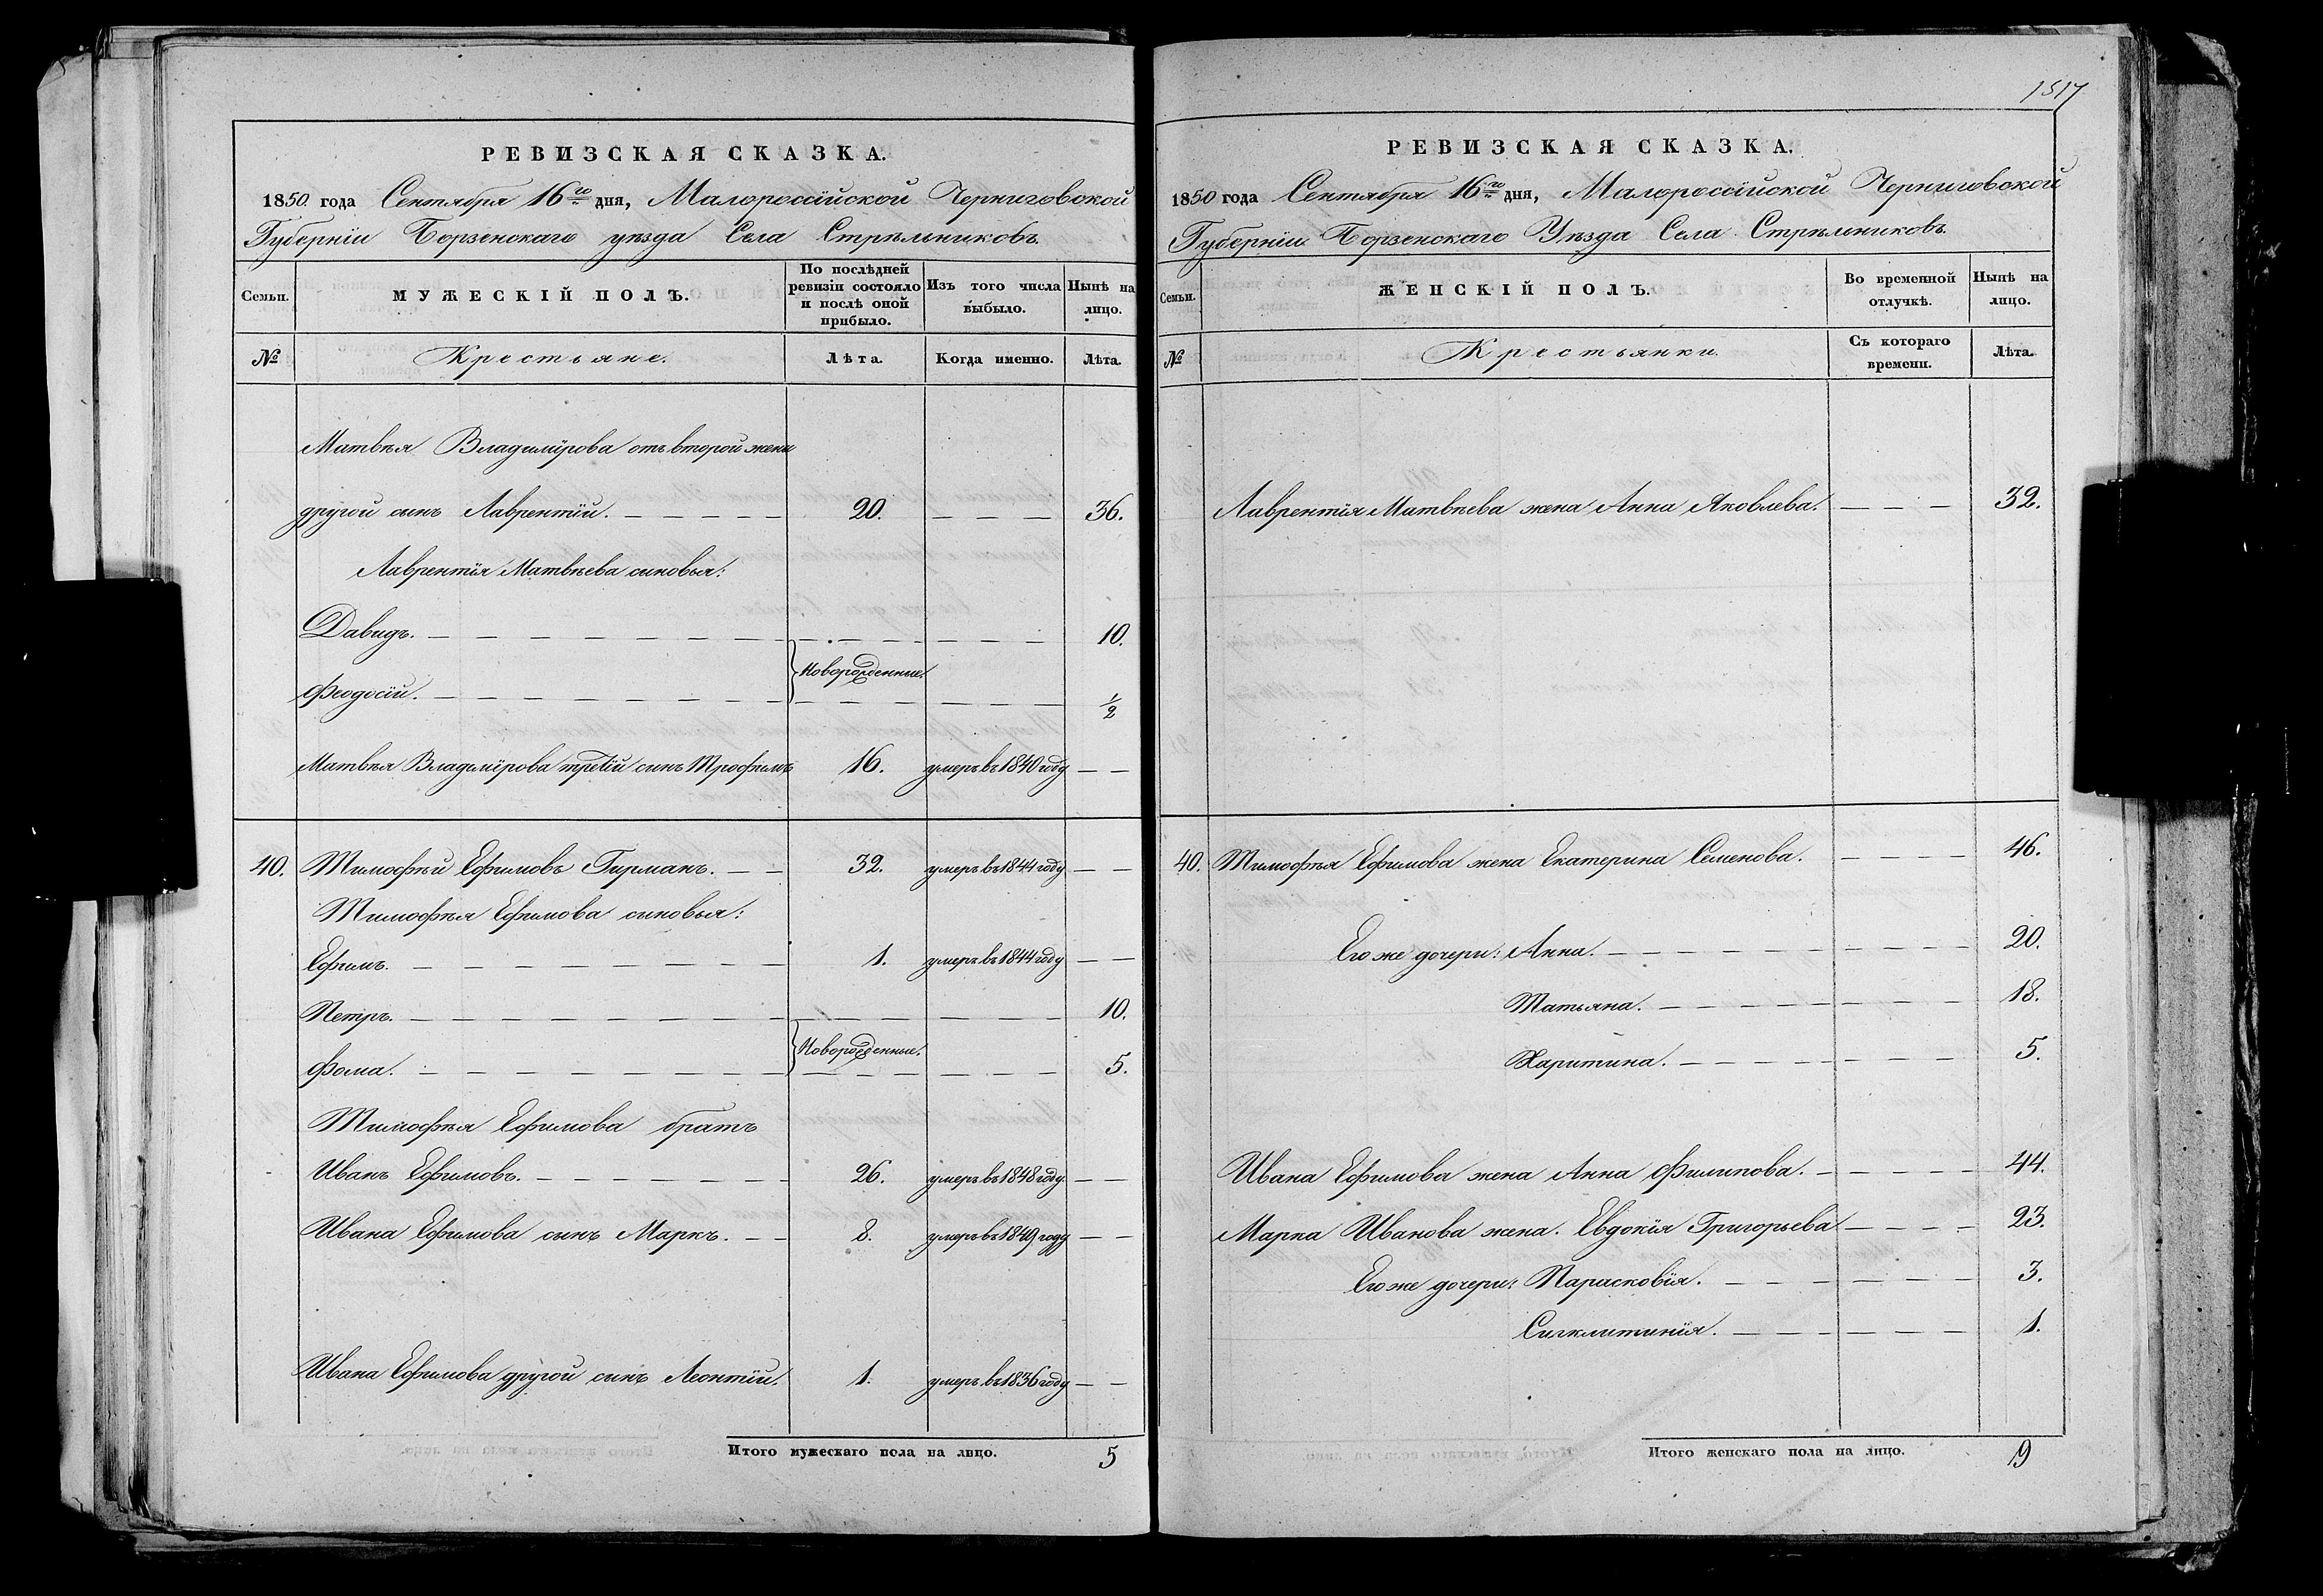 РЕВИЗСКАЯ СКАЗКА.
1850. года Сентября 16го дня, Малоросійской Черниговской
Губерніи Борзенскаго уѣзда Села Стрѣльниковъ
Семьи.
МУЖЕСКІЙ ПОЛЪ.
По послѣдней
ревизіи состояло
и послѣ оной
прибыло.
Изъ того числа
выбыло.
Нынѣ на
лицо.
№
Крестьяне.
Лѣта.
Когда именно.
Лѣта.
Матвѣя Владимірова отъ второй жены
другой сынъ Лаврентій. 20. 36.
Лаврентія Матвѣева сыновья:
Давидъ. 10.
Новорожденные.
Феодосій. 1/2
Матвѣя Владимірова третій сынъ Трофимъ 16. умеръ въ 1840 году
40. Тимофѣй Ефимовъ Гирманъ. 32. умеръ въ 1844 году
Тимофѣя Ефимова сыновья:
Ефимъ. 1. умеръ въ 1844 году
Петръ. 10.
Новорожденные.
Фома. 5.
Тимофѣя Ефимова братъ
Иванъ Ефимовъ. 26. умеръ въ 1848 году
Ивана Ефимова сынъ Маркъ. 8. умеръ въ 1849 году
Ивана Ефимова другой сынъ Леонтій. 1. умеръ въ 1836 году
Итого мужескаго пола на лицо. 5
1517
РЕВИЗСКАЯ СКАЗКА.
1850 года Сентября 16го дня, Малоросійской Черниговской
Губерніи Борзенскаго Уѣзда Села Стрѣльниковъ
Семьи.
ЖЕНСКІЙ ПОЛЪ.
Во временной
отлучкѣ.
Нынѣ на
лицо.
№
Крестьянки.
Съ котораго
времени.
Лѣта.
Лаврентія Матвѣева жена Анна Яковлева. 32.
40. Тимофѣя Ефимова жена Екатерина Семенова. 46.
Его же дочери: Анна. 20.
Татьяна. 18.
Харитина. 5.
Ивана Ефимова жена Анна Филипова. 44.
Марка Иванова жена. Евдокія Григорьева 23.
Его же дочери: Парасковія. 3.
Сигклитинія. 1.
Итого женскаго пола на лицо. 9